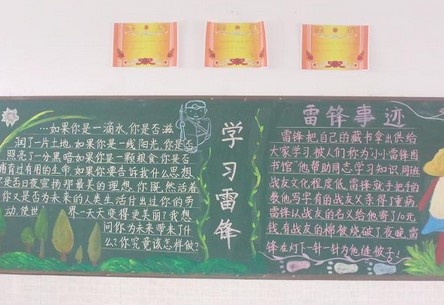 …如果你是一滴水,你是否滋
润了一片土地,如果你是一线阳光,你是否
照亮了一分黑暗如果你是一颗粮食,你是否
哺育过有用的生命,如果你要告诉我什么思想,
你是否日夜宣扬那最美的理想,你既然活着
你又是否为未来的人类生活付出过你的劳
动,使世界一天天变得更美丽?我想
问你为未来带来了什
么?你究竟该怎样做?
学习雷锋
雷锋事迹
雷锋把自己的藏书拿出供给
大家学习,被人们称为"小小雷锋图
书馆"他帮助同志学习知识,同班
战友文化程度低,雷锋就手把手的
教他写字有的战友父亲得了重病,
雷锋以战友的名义给他寄了10元
钱,有战友的棉裤烧破了,夜晚,雷
锋在灯下一针一针为他缝裤子!